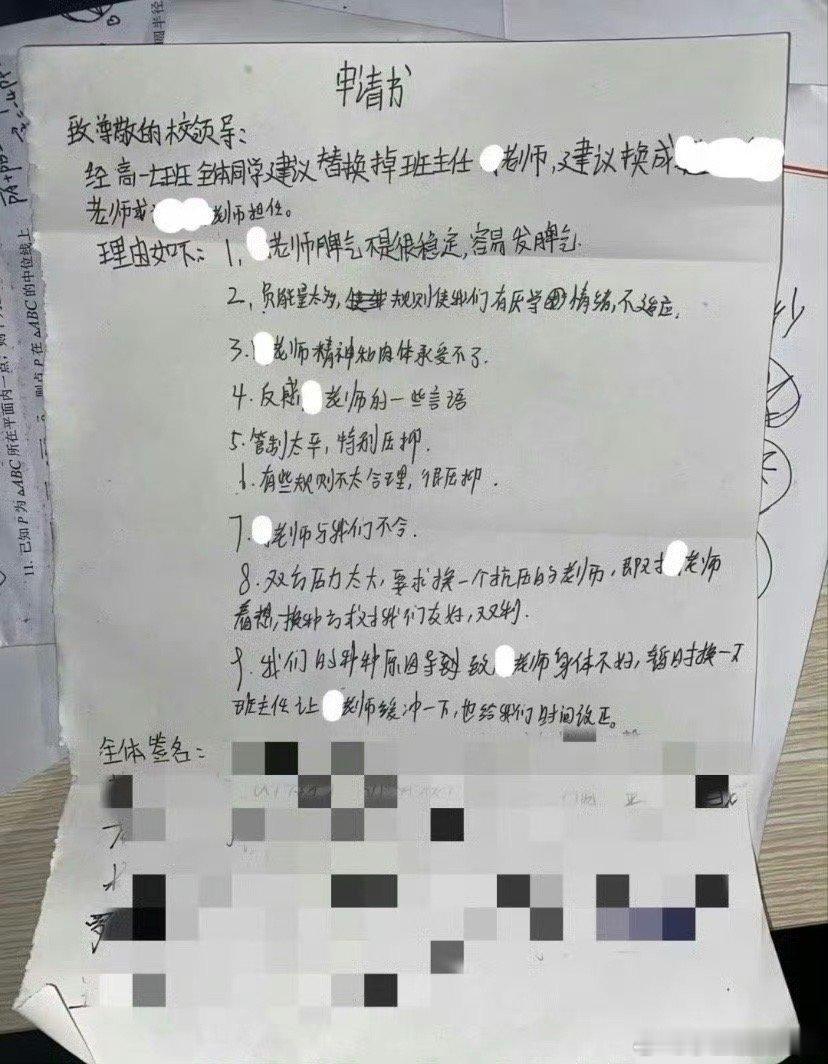 申请书
致尊敬的校领导：
经高一七班全体同学建议替换掉班主任 老师，建议换成
老师或 老师担任。
理由如下：1. 老师脾气不是很稳定，容易发脾气.
2. 负能量太多，规则使我们有厌学情绪，不适应.
3. 老师精神和肉体承受不了.
4. 反感 老师的一些言语
5. 管制太平，特别压抑.
6. 有些规则不太合理，很压抑.
7. 老师与我们不合.
8. 双方压力太大，要求换一个抗压的老师，即对 老师
着想，换种方 对我们友好，双利.
9. 我们的种种原因导致 老师身体不好，暂时换一下
班主任让 老师缓冲一下，也给我们时间改正。
全体签名：
11. 已知P为△ABC所在平面内一点，
则点P在△ABC的中位线上